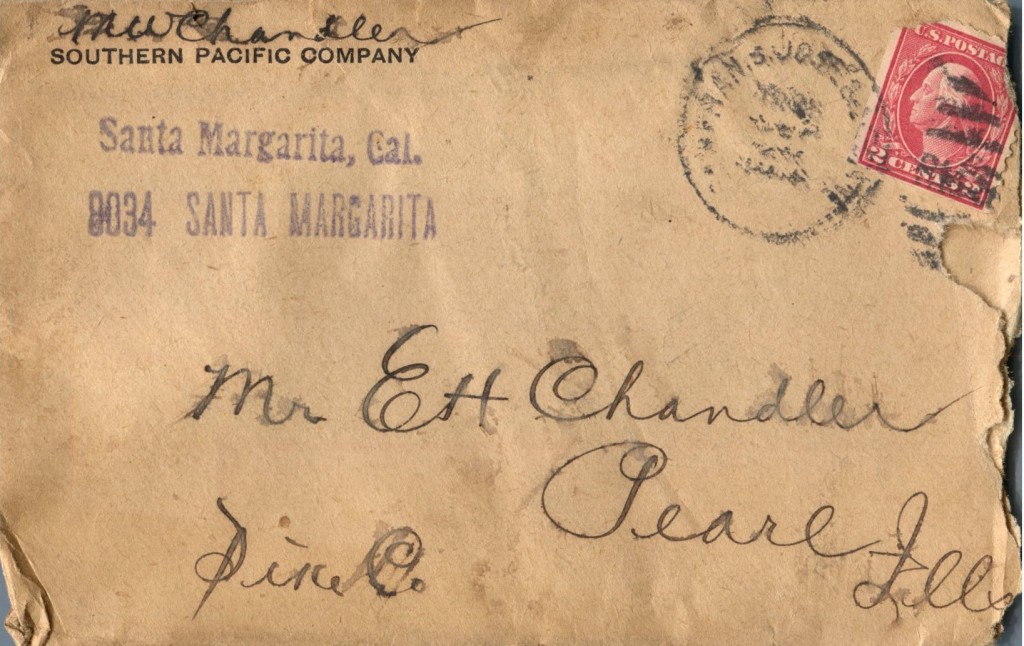 M W Chandler
SOUTHERN PACIFIC COMPANY
Santa Margarita, Cal.
9034 SANTA MARGARITA
U.S. POSTAG
2 CENTS 2
Mr E H Chandler
Pearl
Ills
Pike Co.